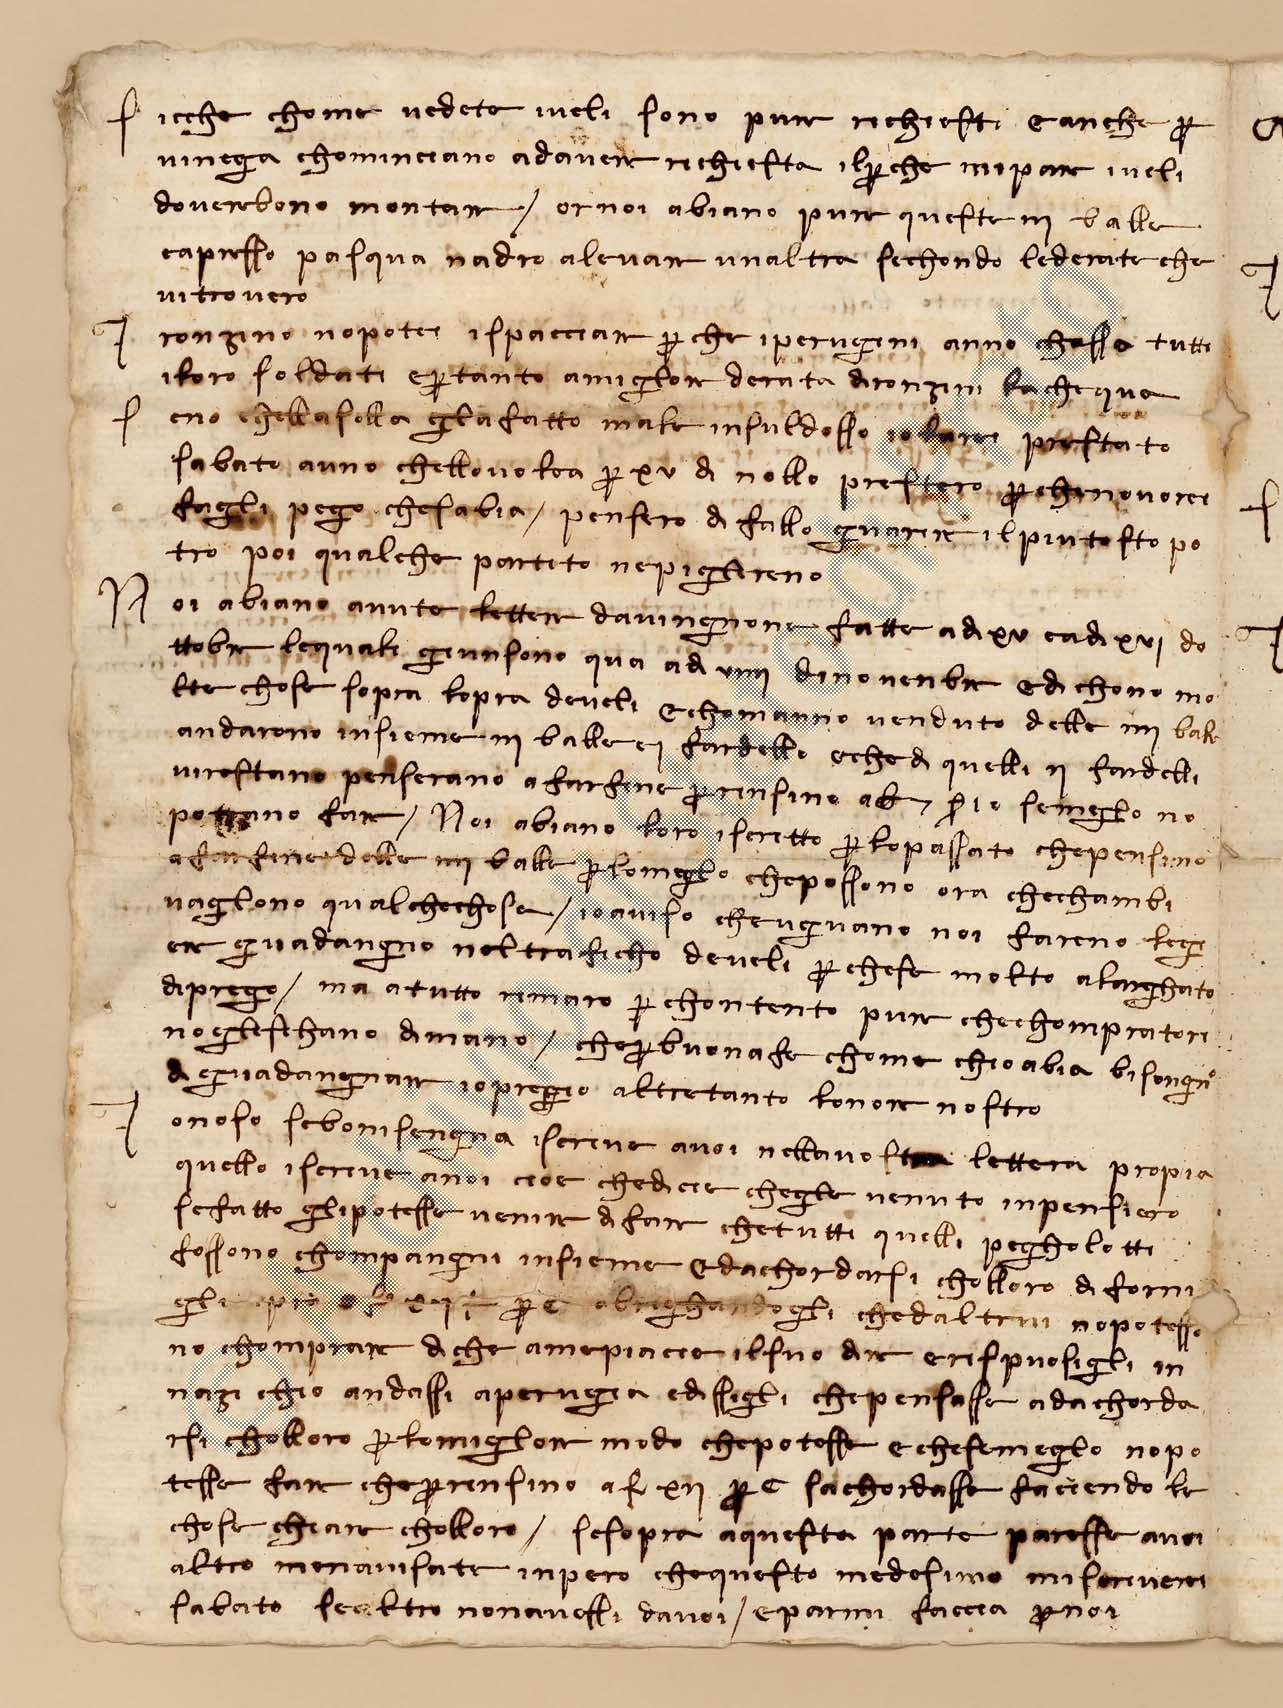 Sicche chome vedete i veli sono pure rechiesti e anche per
vinegia chominciano ad avere rechiesta il perche mi pare i veli
doverbono montare / or noi abiano pure queste iij balle
e apresso pasqua nadro a levare unaltra sechondo le derate che
vi trovero
ronzino no potei ispacciare perche i perugini anno chasso tutti
i loro soldati e per tanto a miglore derata di ronzini la che qua
eno e chella sella gla fatto male in sul dosso io larei prestato
sabato a uno chello volea per xv di nollo prestero perche no vorei
fagli pegio che sabia / pensero di fallo guarire il piu tosto po
tro poi qualche partito ne piglereno
Noi abiano avute lettere da vingnone fatte a di xv e a di xvj do
ttobre le quale giunsono qua a di viiij di novenbre e dichono mo
lte chose sopra lopra de veli e chomanno venduto delle iiij balle
andarono insieme iij balle e j fardello e che di quelli ij fardelli
vi restano penserano a farfine per rensino a
potrano fare / Noi abiano loro iscritto per lo passato che pensino
a farfine delle iiij balle per lo meglo che possono ora che chambi
vaglono qualche chosa / io aviso che uguano noi fareno legi
ere guadangno nel traficho de veli perche se molto alarghato
di pregio / ma a tutto rimaro per chontento pure che chompratori
no gle schano di mano / che per buona fe chome chio abia bisongno
di guadangnare io pregio altretanto lonore nostro
o no so se bonisengna iscrive a voi nella vostra lettera propia
quello iscrive a noi cioe che dice che gle venuto in pensiero
se fatto gli potesse venire di fare che tutti quelli pegholotti
fossono chompangni insieme e dachordarsi cholloro di forni
gli per C abrighandogli che daltrui no potesso
no chomprare di che a me piacie il suo dire e rispuosigli in
nazi chio andassi a perugia e dissigli che pensasse a dachorda
rsi cholloro per lo miglore modo che potesse e che se meglo no po
tesse fare che per rensino a f xij per C sachordasse faciendo le
chose chiare cholloro / se sopra a questa parte paresse a voi
altro menavisate inpero che questo medesimo mi scriverei
sabato se altro non avessi da voi / e parmi faccia per noi